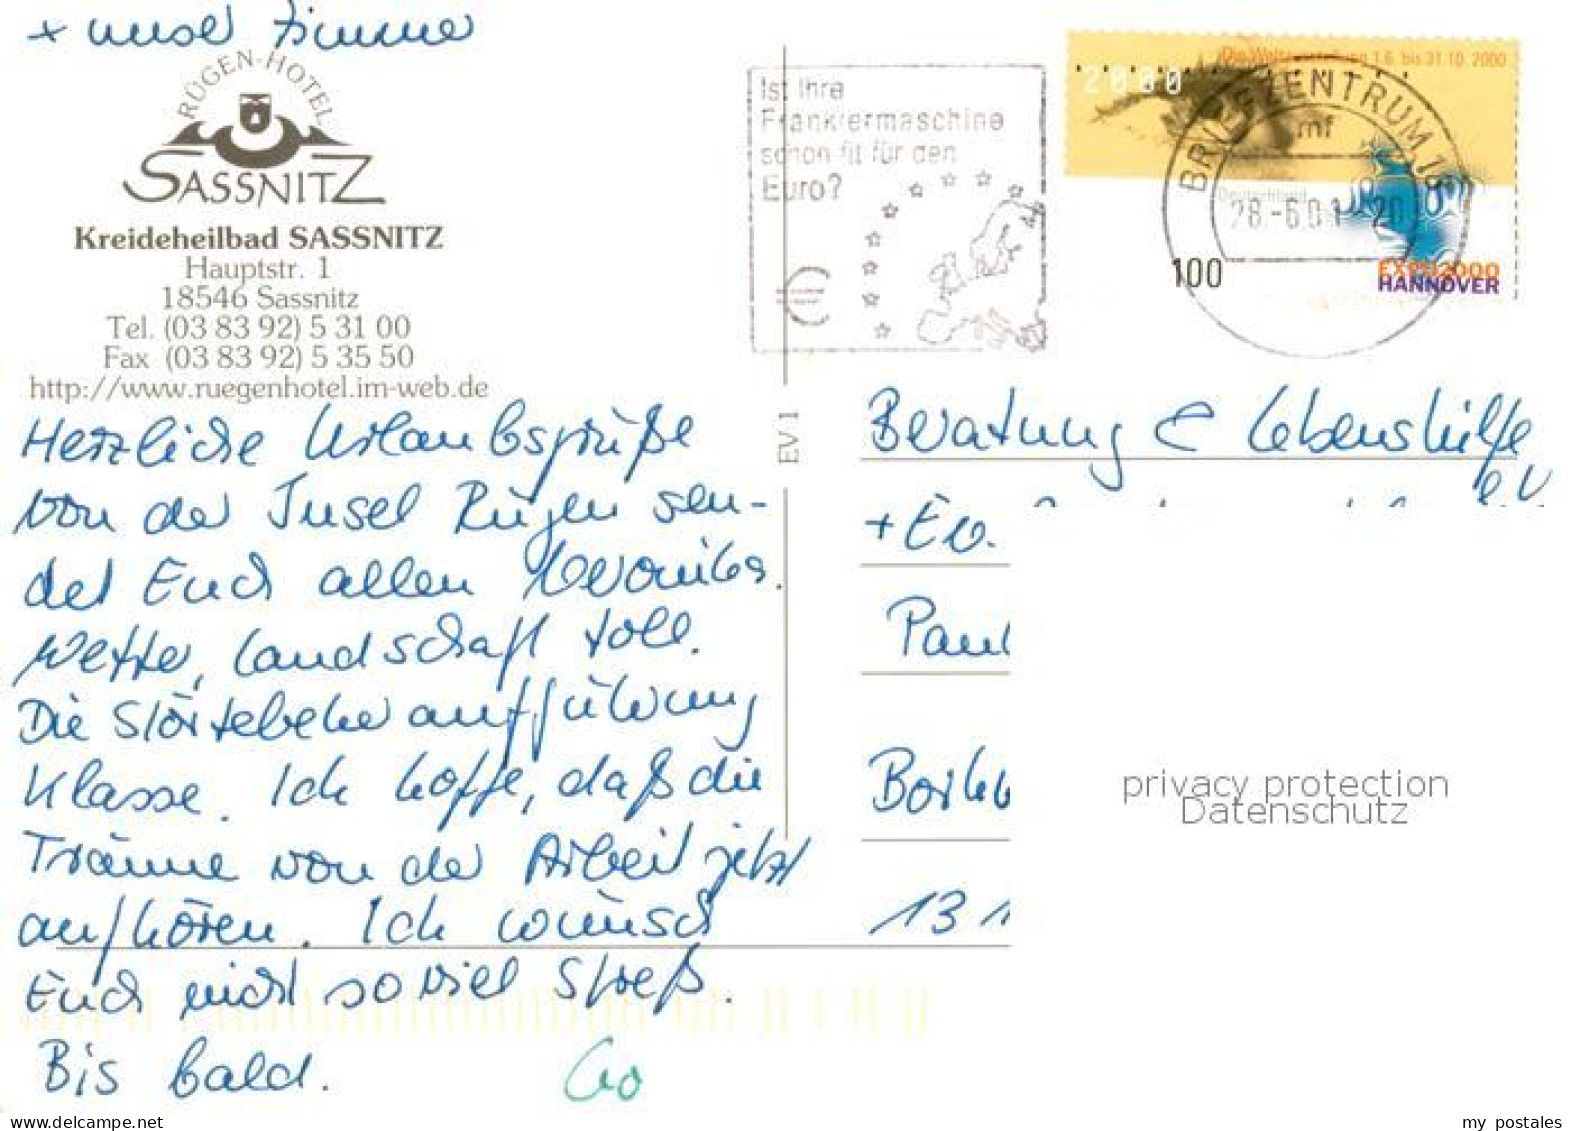 + unser Zimmer
RÜGEN-HOTEL
SASSNITZ
Kreideheilbad SASSNITZ
Hauptstr. 1
18546 Sassnitz
Tel. (03 83 92) 5 31 00
Fax (03 83 92) 5 35 50
http://www.ruegenhotel.im-web.de
Herzliche Urlaubsgrüße
von der Insel Rügen sen-
det Euch allen Veronika.
Wetter, Landschaft toll.
Die Störtebekeraufführung
Klasse. Ich hoffe, daß die
Träume von der Arbeit jetzt
aufhören. Ich wünsch
Euch nicht so viel Streß.
Bis bald.
Go
EV 1
Ist Ihre
Frankiermaschine
schon fit für den
Euro?
€
Die Weltausstellung 1.6. bis 31.10. 2000
2000
BRIEFZENTRUM 18
mf
Deutschland
28.-6.01-20
100
EXPO2000
HANNOVER
Beratung & Lebenshilfe
e.V
+ Ev.
Paul
13 1
privacy protection
Datenschutz
my postales